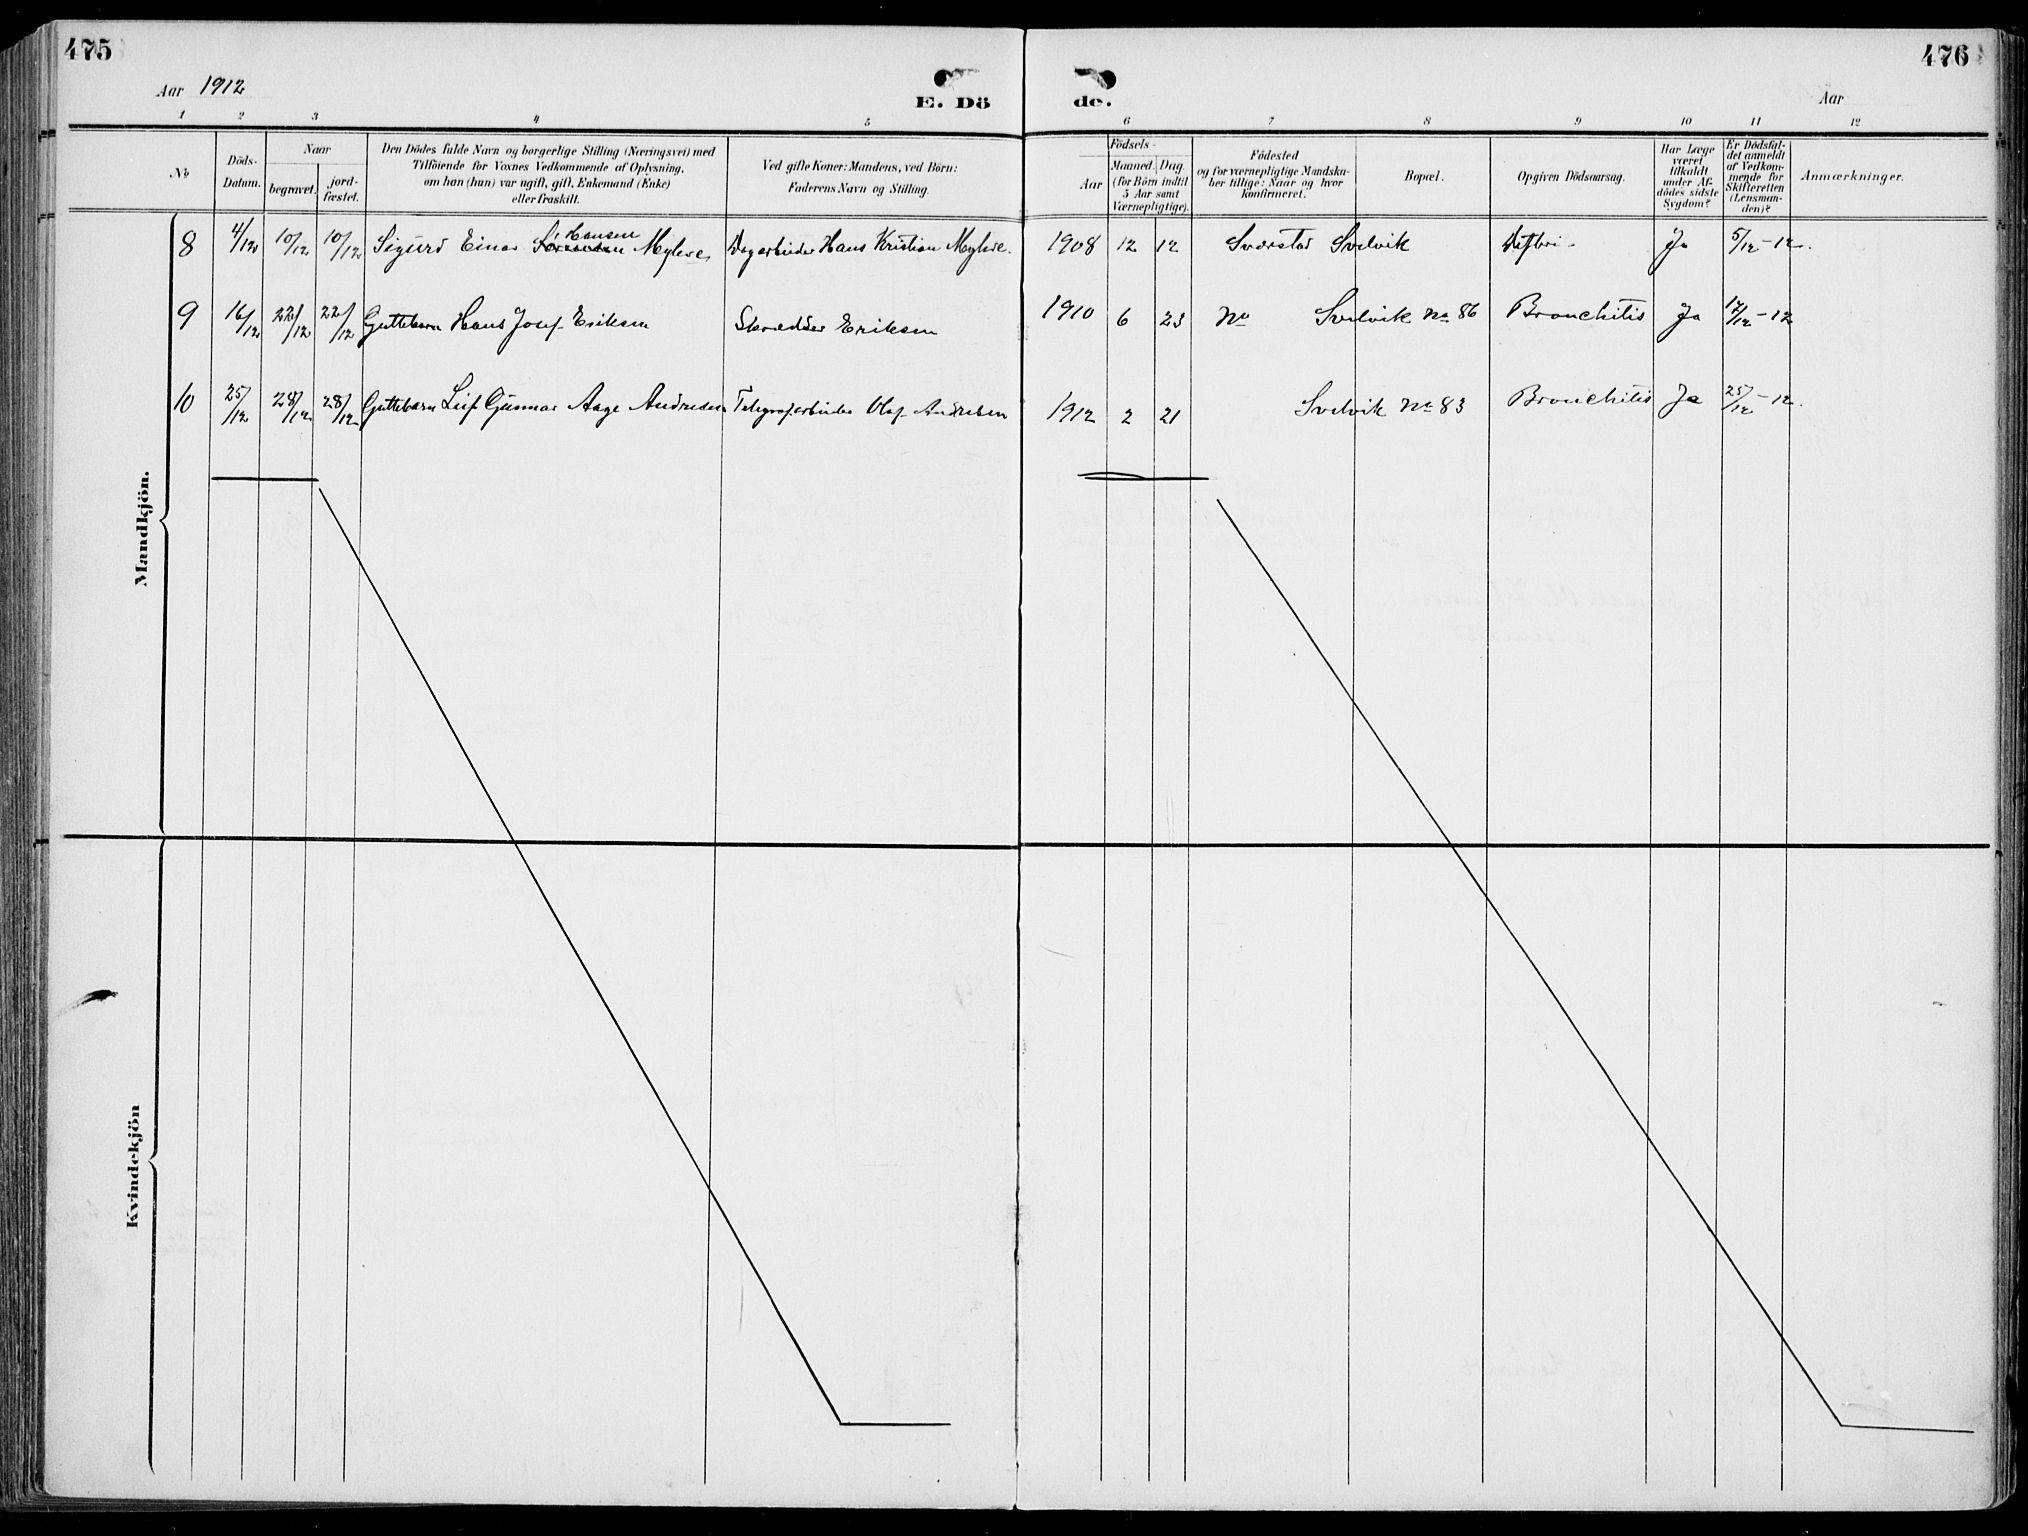 475
476
Aar 1912
E. Dö
de.
Aar
1 2 3 4 5 6 7 8 9 10 11 12
No
Döds-
Datum.
Naar
begravet.
jord-
fæstet.
Den Dödes fulde Navn og borgerlige Stilling (Næringsvei) med
Tilföiende for Voxnes Vedkommende af Oplysning,
om han (hun) var ugift, gift, Enkemand (Enke)
eller fraskilt.
Ved gifte Koner: Mandens, ved Börn:
Faderens Navn og Stilling.
Födsels-
Aar
Maaned. Dag.
(for Börn indtil
5 Aar samt
Værnepligtige).
Födested
og for værnepligtige Mandska-
ber tillige: Naar og hvor
konfirmeret.
Bopæl.
Opgiven Dödsaarsag.
Har Læge
været
tilkaldt
under Af-
dödes sidste
Sygdom?
Er Dödsfal-
det anmeldt
af Vedkom-
mende for
Skifteretten
(Lensman-
den)?
Anmærkninger.
Hansen
8 4/12 10/12 10/12 Sigurd Einar Myhre, Dagarbeider Hans Kristian Myhre. 1908 12 12 Svelvik Ja 5/12-12.
9 16/12 22/12 22/12 Guttebarn Hans Josef Eriksen Skrædder Eriksen 1910 6 23 Svelvik No 86 Bronchitis Ja 17/12-12
10 25/12 28/12 28/12 Guttebarn Leif Gunnar Aage Andresen Telegrafarbeider Olaf Andresen 1912 2 21 Svelvik No 83 Bronchitis Ja 25/12-12.
Mandkjön.
Kvindekjön